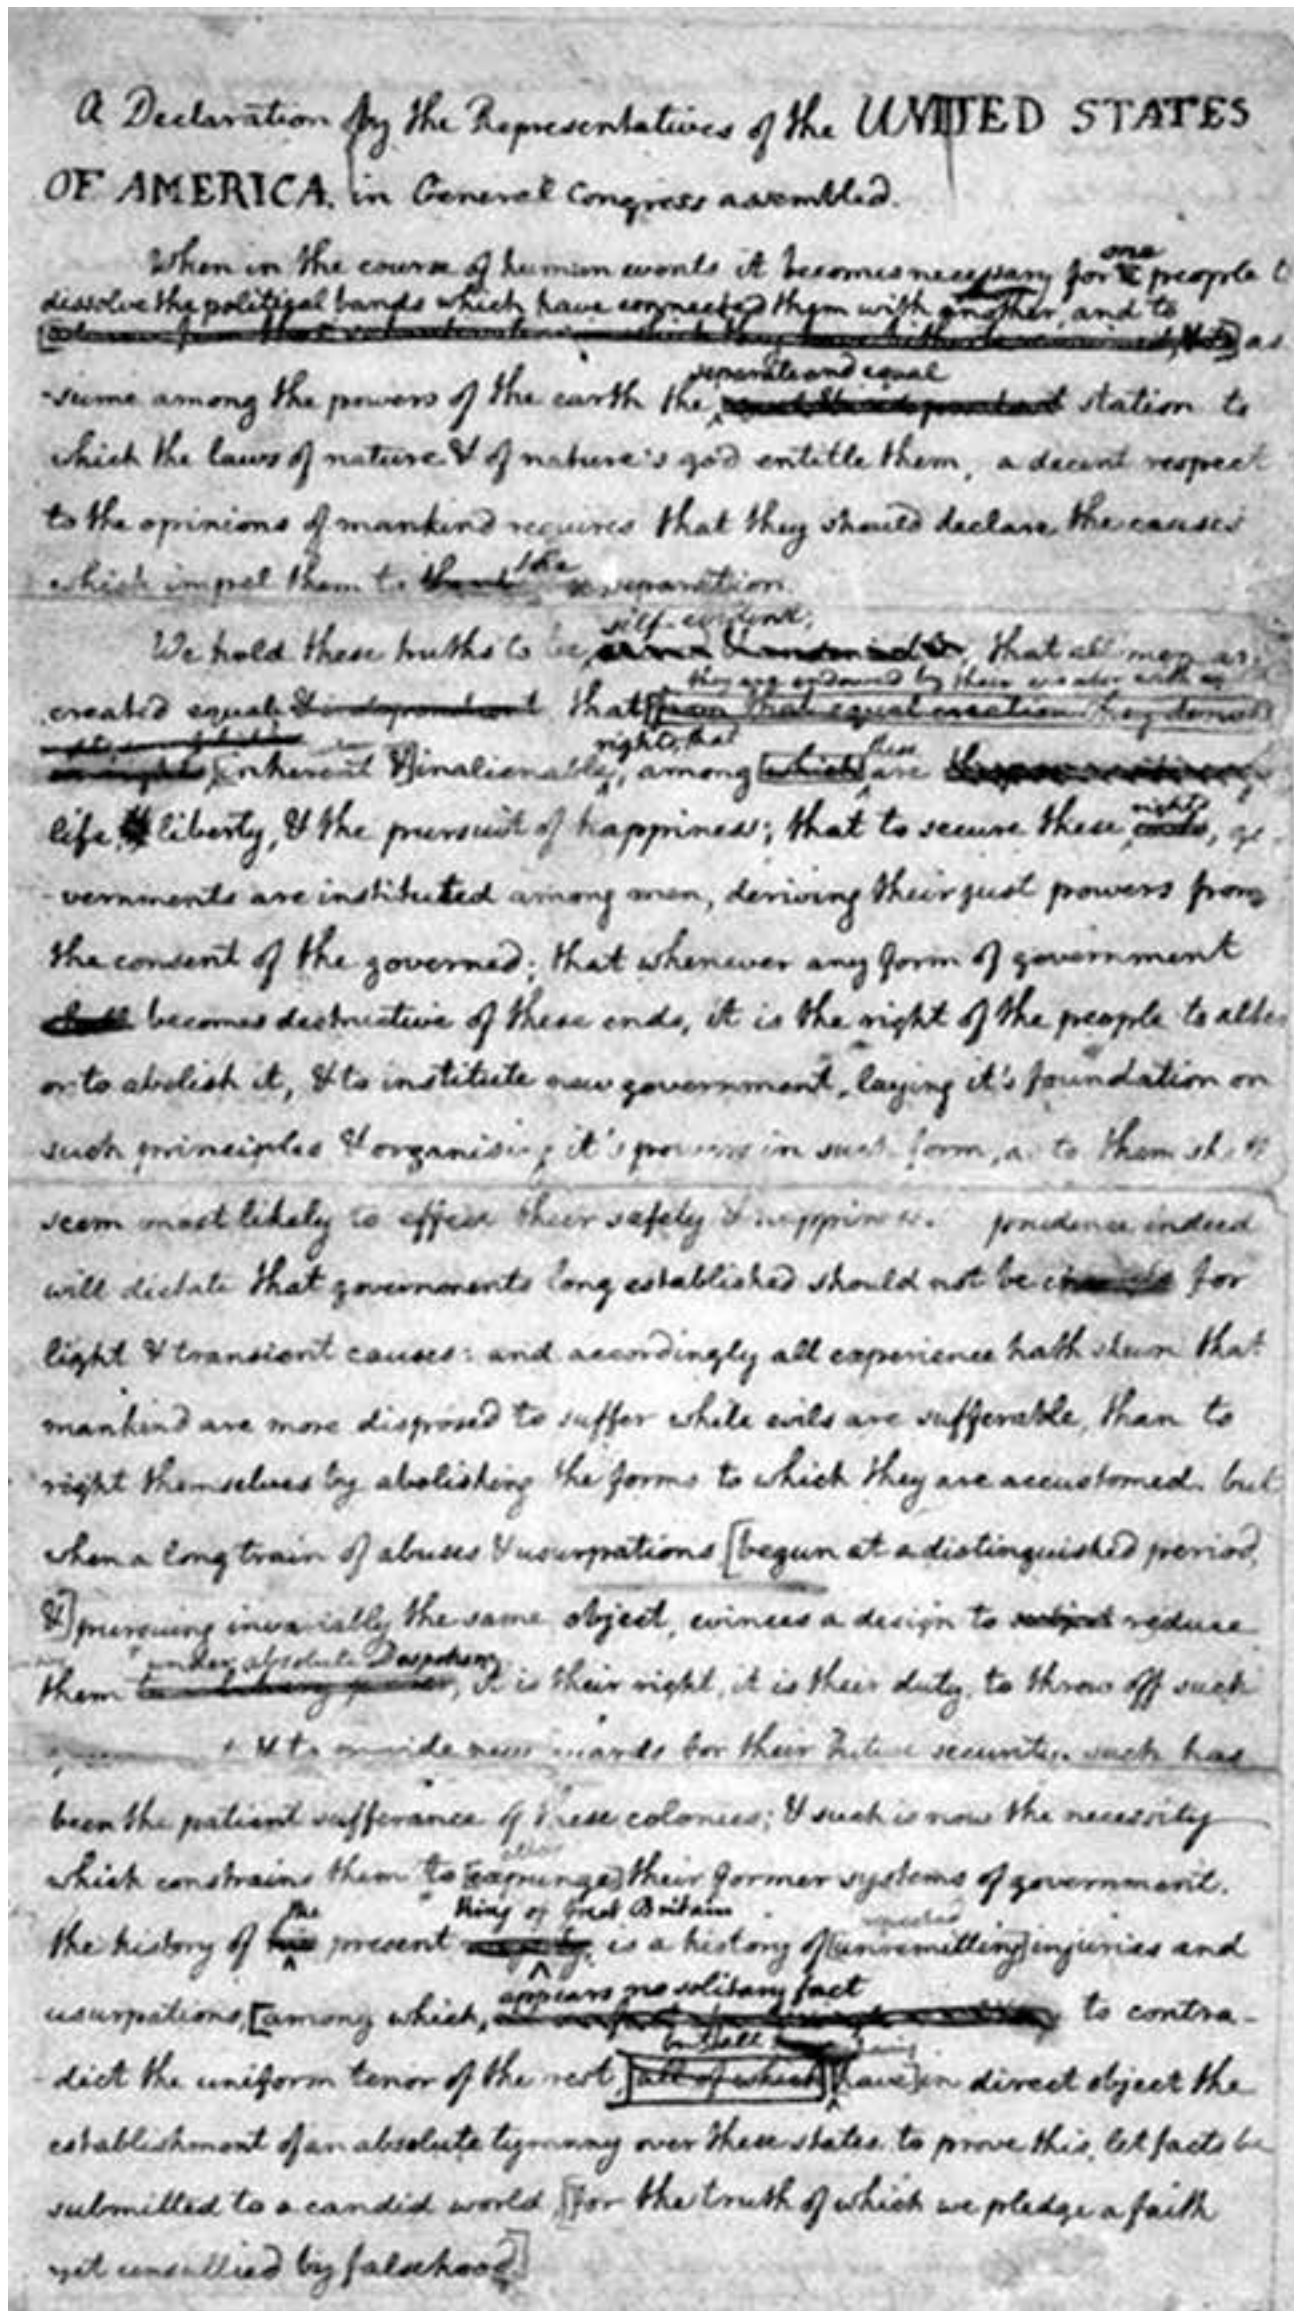 A Declaration by the Representatives of the UNITED STATES
OF AMERICA, in General Congress assembled.
When in the course of human events it becomes necessary for
one
people t
dissolve the political bands which have connected them with another, and to
as
separate and equal
-sume among the powers of the earth the station to
which the laws of nature & of nature's god entitle them, a decent respect
to the opinions of mankind requires that they should declare the causes
the
which impel them to separation.
self-evident;
We hold these truths to be that all men are
they are endowed by their creator with
created equal & independent that from that equal creation they
rights; that
these
inherent & inalienable, among which are
rights
life & liberty, & the pursuit of happiness; that to secure these ends, go-
-vernments are instituted among men, deriving their just powers from
the consent of the governed; that whenever any form of government
shall becomes destructive of these ends, it is the right of the people to alter
or to abolish it, & to institute new government, laying it's foundation on
such principles & organising it's powers in such form, as to them shall
seem most likely to effect their safety & happiness. prudence indeed
will dictate that governments long established should not be changed for
light & transient causes: and accordingly all experience hath shewn that
mankind are more disposed to suffer while evils are sufferable, than to
right themselves by abolishing the forms to which they are accustomed. but
when a long train of abuses & usurpations [begun at a distinguished period,
&] pursuing invariably the same object, evinces a design to subject reduce
under absolute Despotism
them it is their right, it is their duty, to throw off such
& to provide new guards for their future security. such has
been the patient sufferance of these colonies; & such is now the necessity
alter
which constrains them to [expunge] their former systems of government.
the
King of Great Britain
repeated
the history of his present is a history of [unremitting] injuries and
appears no solitary fact
usurpations, [among which, to contra-
but all
-dict the uniform tenor of the rest, [all of which] [have] in direct object the
establishment of an absolute tyranny over these states. to prove this, let facts be
submitted to a candid world, [for the truth of which we pledge a faith
yet unsullied by falsehood]